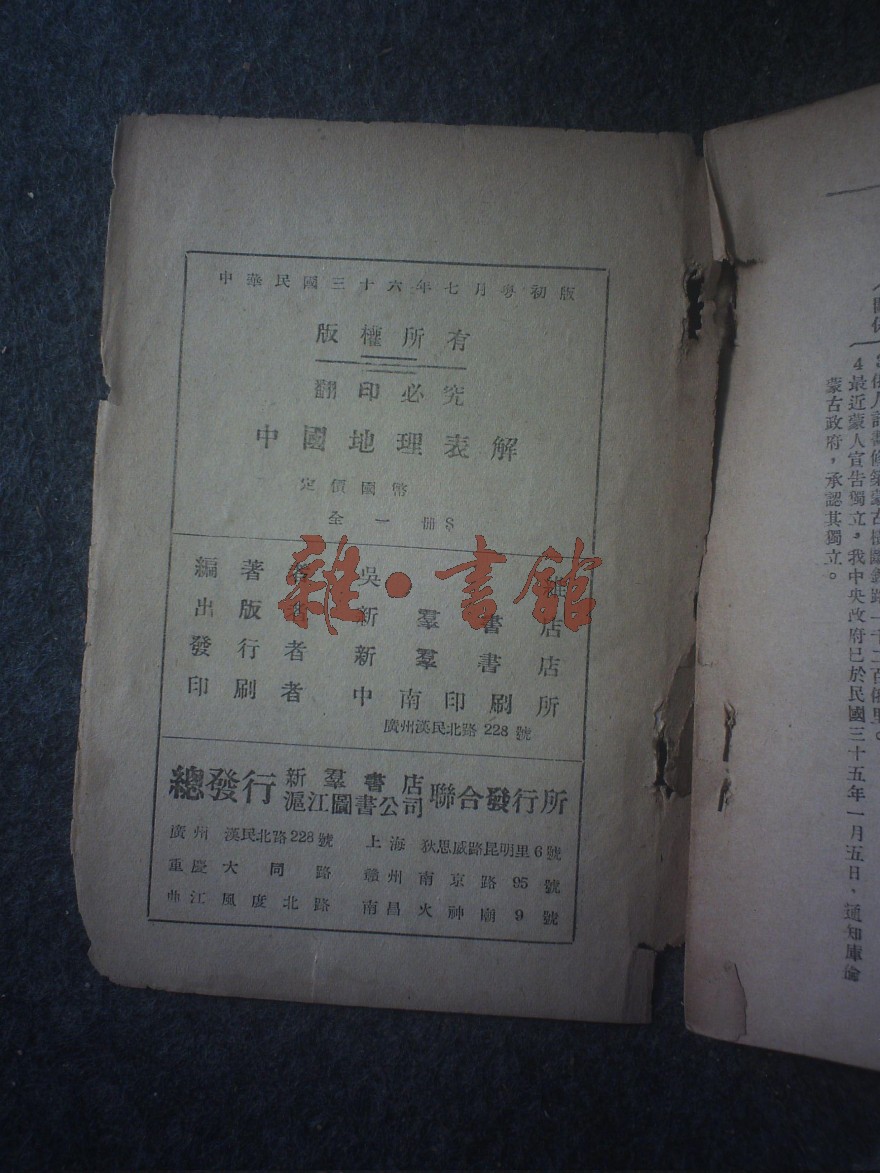 中華民國三十六年七月粵初版
版權所有
翻印必究
中國地理表解
定價國幣
全一冊$
編著者 吳
出版者 新羣書店
發行者 新羣書店
印刷者 中南印刷所
廣州漢民北路228號
總發行 新羣書店 滬江圖書公司 聯合發行所
廣州 漢民北路228號 上海 狄思威路昆明里6號
重慶大同路 贛州南京路95號
曲江風度北路 南昌火神廟9號
雜·書館
4最近蒙人宣告獨立，我中央政府已於民國三十五年一月五日、通知庫倫
蒙古政府，承認其獨立。